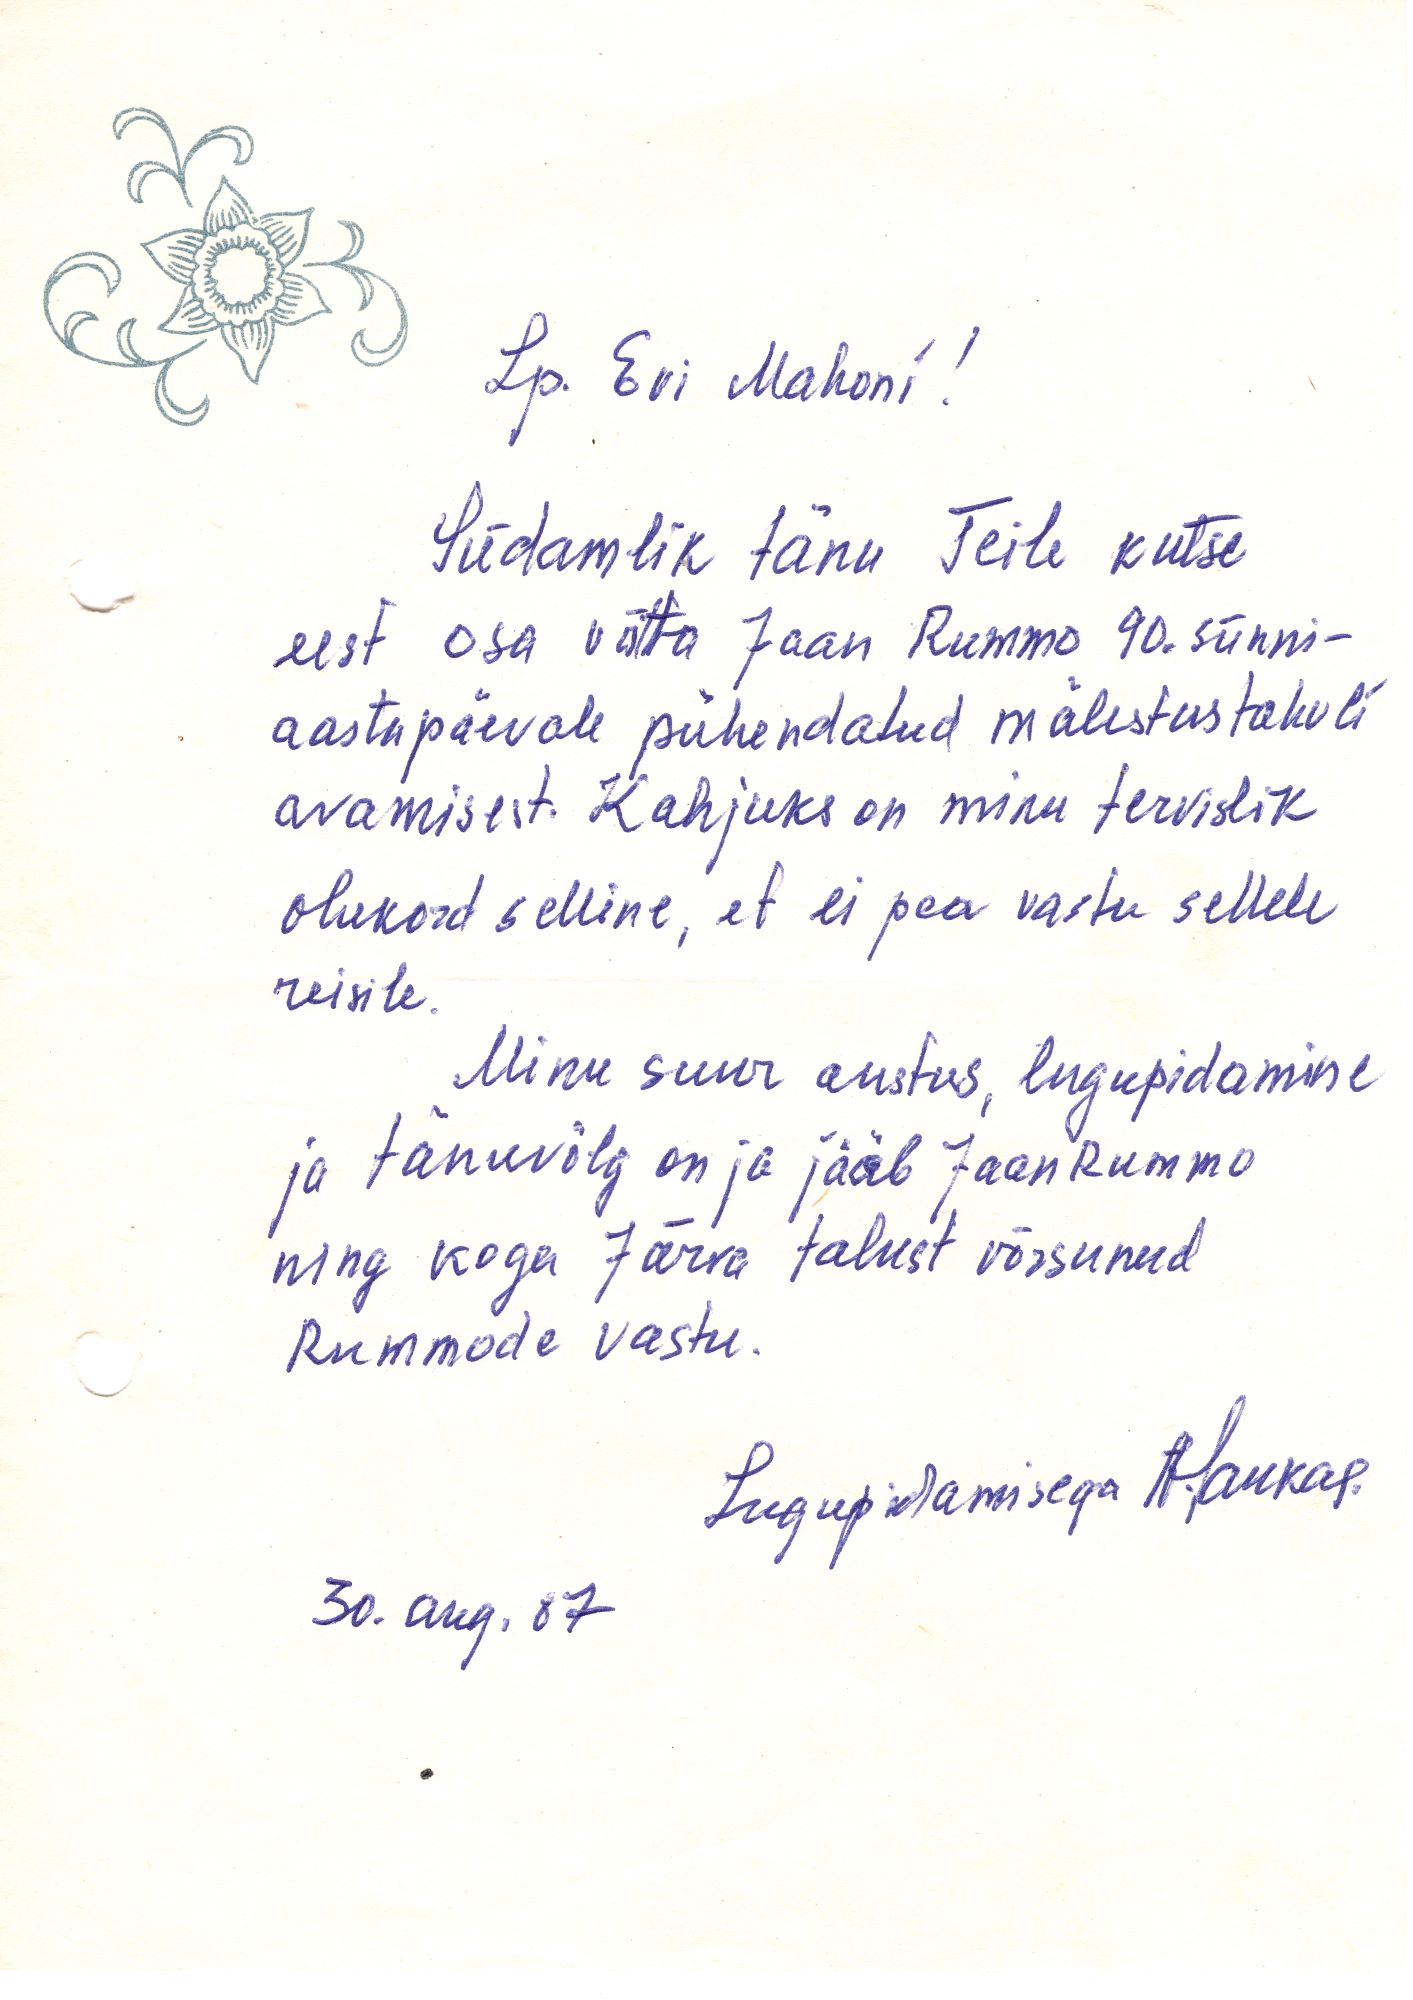 Lp. Evi Mahoni!
Südamlik tänu Teile kutse
eest osa võtta Jaan Rummo 90. sünni-
aastapäevale pühendatud mälestustahvli
avamisest. Kahjuks on minu tervislik
olukord selline, et ei pea vastu sellele
reisile.
Minu suur austus, lugupidamine
ja tänuvõlg on ja jääb Jaan Rummo
ning kogu Järva talust võrsunud
Rummode vastu.
Lugupidamisega
30. aug. 87